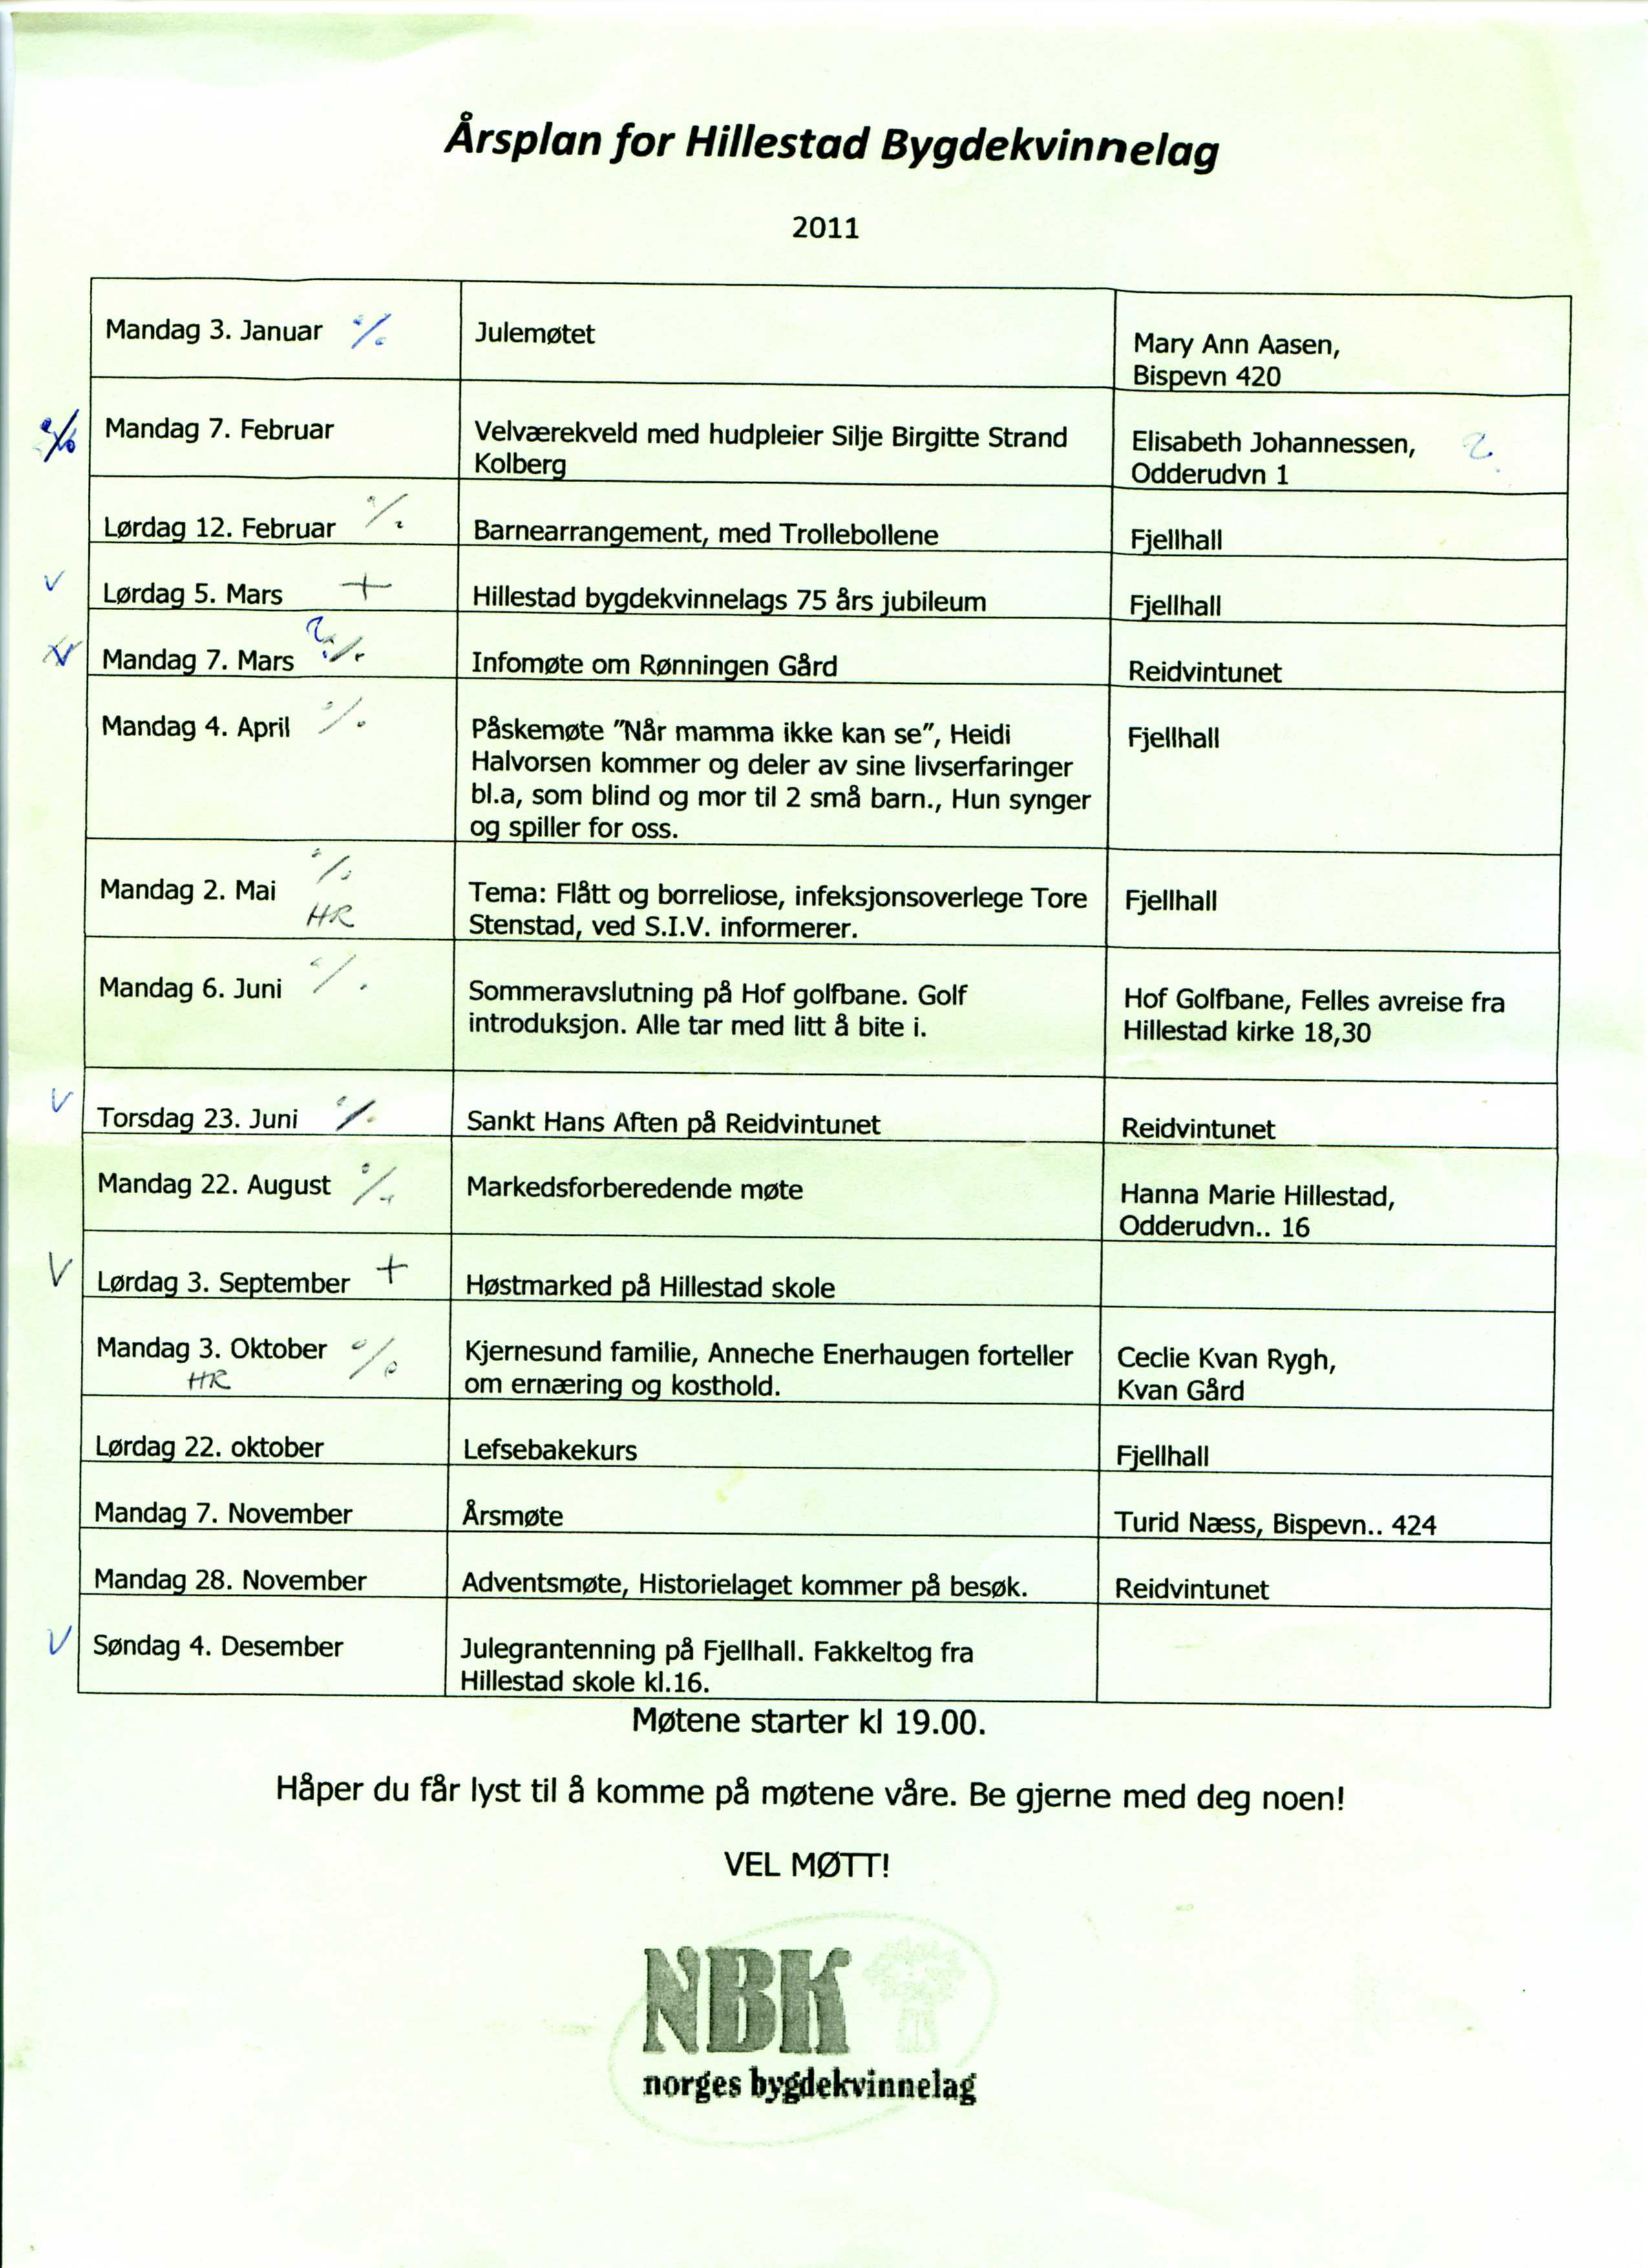 Årsplan for Hillestad Bygdekvinnelag
2011
Mandag 3. Januar %
Julemøtet
Mary Ann Aasen,
Bispevn 420
% Mandag 7. Februar
Velværekveld med hudpleier Silje Birgitte Strand
Kolberg
Elisabeth Johannessen,
Odderudvn 1
Lørdag 12. Februar %
Barnearrangement, med Trollebollene
Fjellhall
V Lørdag 5. Mars +
Hillestad bygdekvinnelags 75 års jubileum
Fjellhall
V Mandag 7. Mars ? %
Infomøte om Rønningen Gård
Reidvintunet
Mandag 4. April %
Påskemøte "Når mamma ikke kan se", Heidi
Halvorsen kommer og deler av sine livserfaringer
bl.a, som blind og mor til 2 små barn., Hun synger
og spiller for oss.
Fjellhall
Mandag 2. Mai %
HR
Tema: Flått og borreliose, infeksjonsoverlege Tore
Stenstad, ved S.I.V. informerer.
Fjellhall
Mandag 6. Juni %
Sommeravslutning på Hof golfbane. Golf
introduksjon. Alle tar med litt å bite i.
Hof Golfbane, Felles avreise fra
Hillestad kirke 18,30
V Torsdag 23. Juni %
Sankt Hans Aften på Reidvintunet
Reidvintunet
Mandag 22. August %
Markedsforberedende møte
Hanna Marie Hillestad,
Odderudvn.. 16
V Lørdag 3. September +
Høstmarked på Hillestad skole
Mandag 3. Oktober %
HR
Kjernesund familie, Anneche Enerhaugen forteller
om ernæring og kosthold.
Ceclie Kvan Rygh,
Kvan Gård
Lørdag 22. oktober
Lefsebakekurs
Fjellhall
Mandag 7. November
Årsmøte
Turid Næss, Bispevn.. 424
Mandag 28. November
Adventsmøte, Historielaget kommer på besøk.
Reidvintunet
V Søndag 4. Desember
Julegrantenning på Fjellhall. Fakkeltog fra
Hillestad skole kl.16.
Møtene starter kl 19.00.
Håper du får lyst til å komme på møtene våre. Be gjerne med deg noen!
VEL MØTT!
NBK
norges bygdekvinnelag